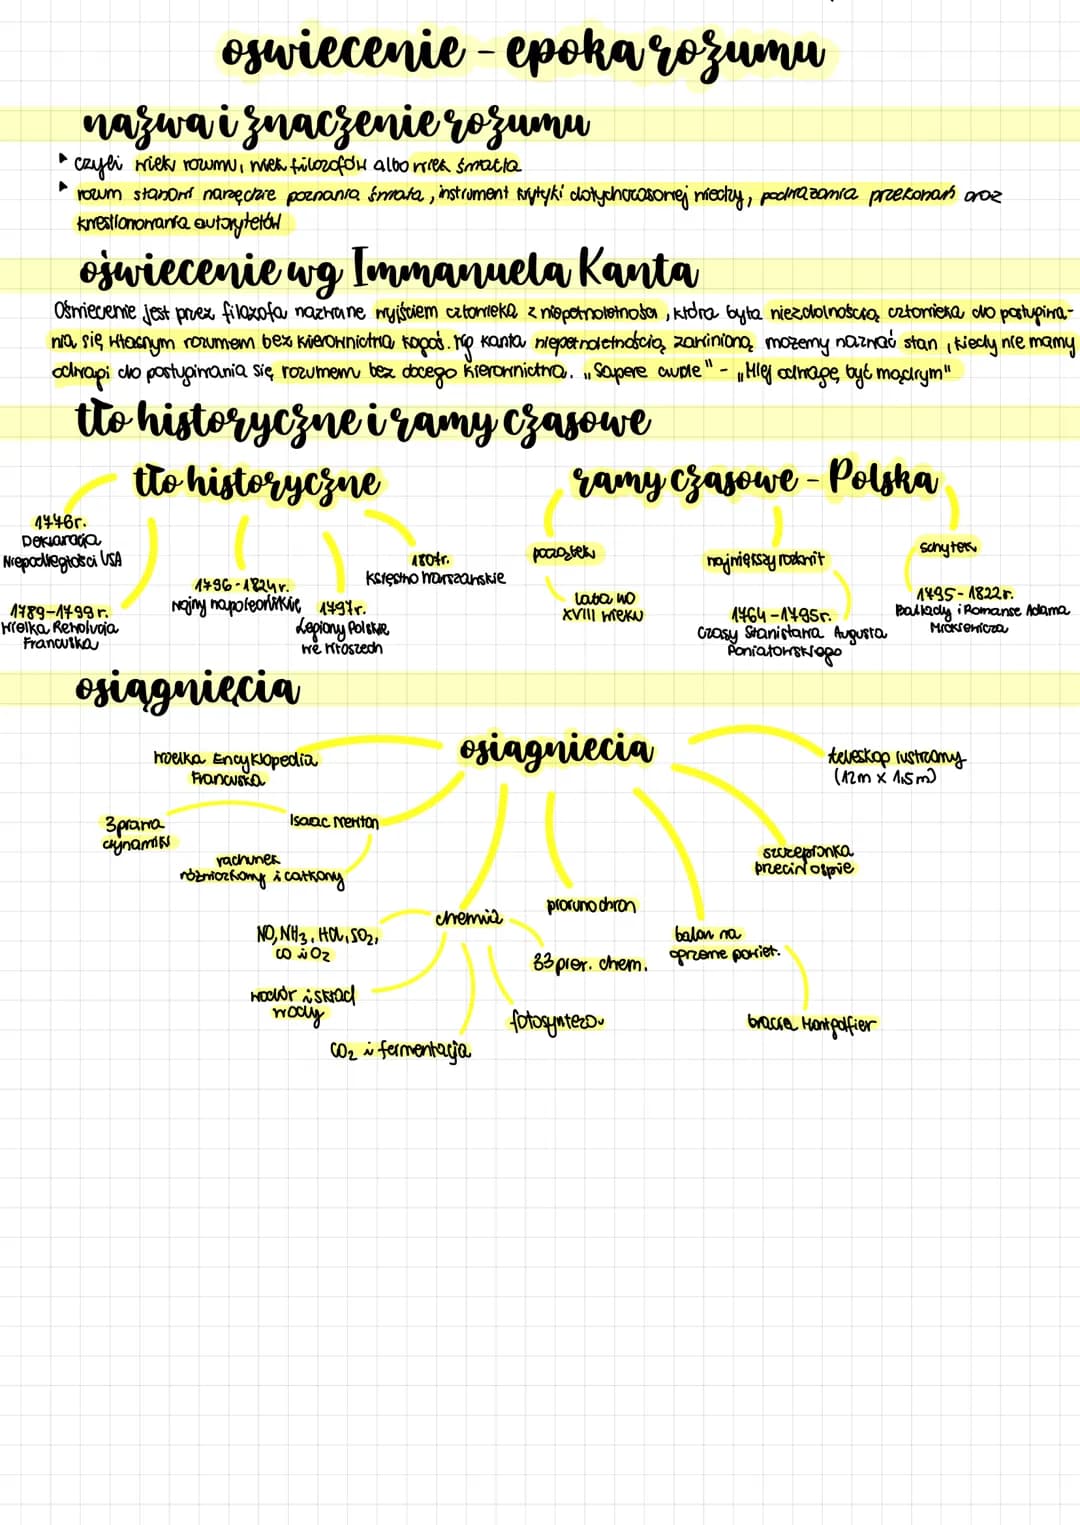 oswiecenie - epoka rozumu
nazwa i znaczenie rozumu
▸ czyli wiek rozumu, wiek filozofów albo wiek światła
▸ rozum stanowi narzędzie poznania świata, instrument krytyki dotychczasowej wiedzy, podważania przekonań oraz
kwestionowania autorytetów
oświecenie wg Immanuela Kanta
Oświecenie jest przez filozofa nazwane wyjściem człowieka z niepełnoletności, która była niezdolnością człowieka do posługiwa-
nia się własnym rozumem bez kierownictwa kogoś. Wg Kanta niepełnoletnością zawinioną możemy nazwać stan, kiedy nie mamy
odwagi do posługiwania się rozumem bez obcego kierownictwa. „Sapere aude" - „Miej odwagę być mądrym"
tło historyczne i ramy czasowe
tło historyczne
ramy czasowe - Polska
1776r.
Deklaracja
Niepodległości USA
1789-1799r.
Wielka Rewolucja
Francuska
1796-1824r.
Wojny napoleońskie
1797r.
Legiony Polskie
we Włoszech
1807r.
Księstwo Warszawskie
początek
lata 40
XVIII wieku
największy rozkwit
1764-1795r.
Czasy Stanisława Augusta
Poniatowskiego
schyłek
1795-1822r.
Ballady i Romanse Adama
Mickiewicza
osiągnięcia
osiągniecia
Wielka Encyklopedia
Francuska
Isaac Newton
3 prawa
dynamiki
rachunek
różniczkowy i całkowy
chemia
NO, NH3, HCl, SO2,
CO i O2
wodór i skład
wody
CO2 i fermentacja
fotosynteza
33 pier. chem.
piorunochron
balon na
ogrzane powiet.
bracia Montgolfier
szczepionka
przeciw ospie
teleskop lustrzany
(12m x 1,5m)